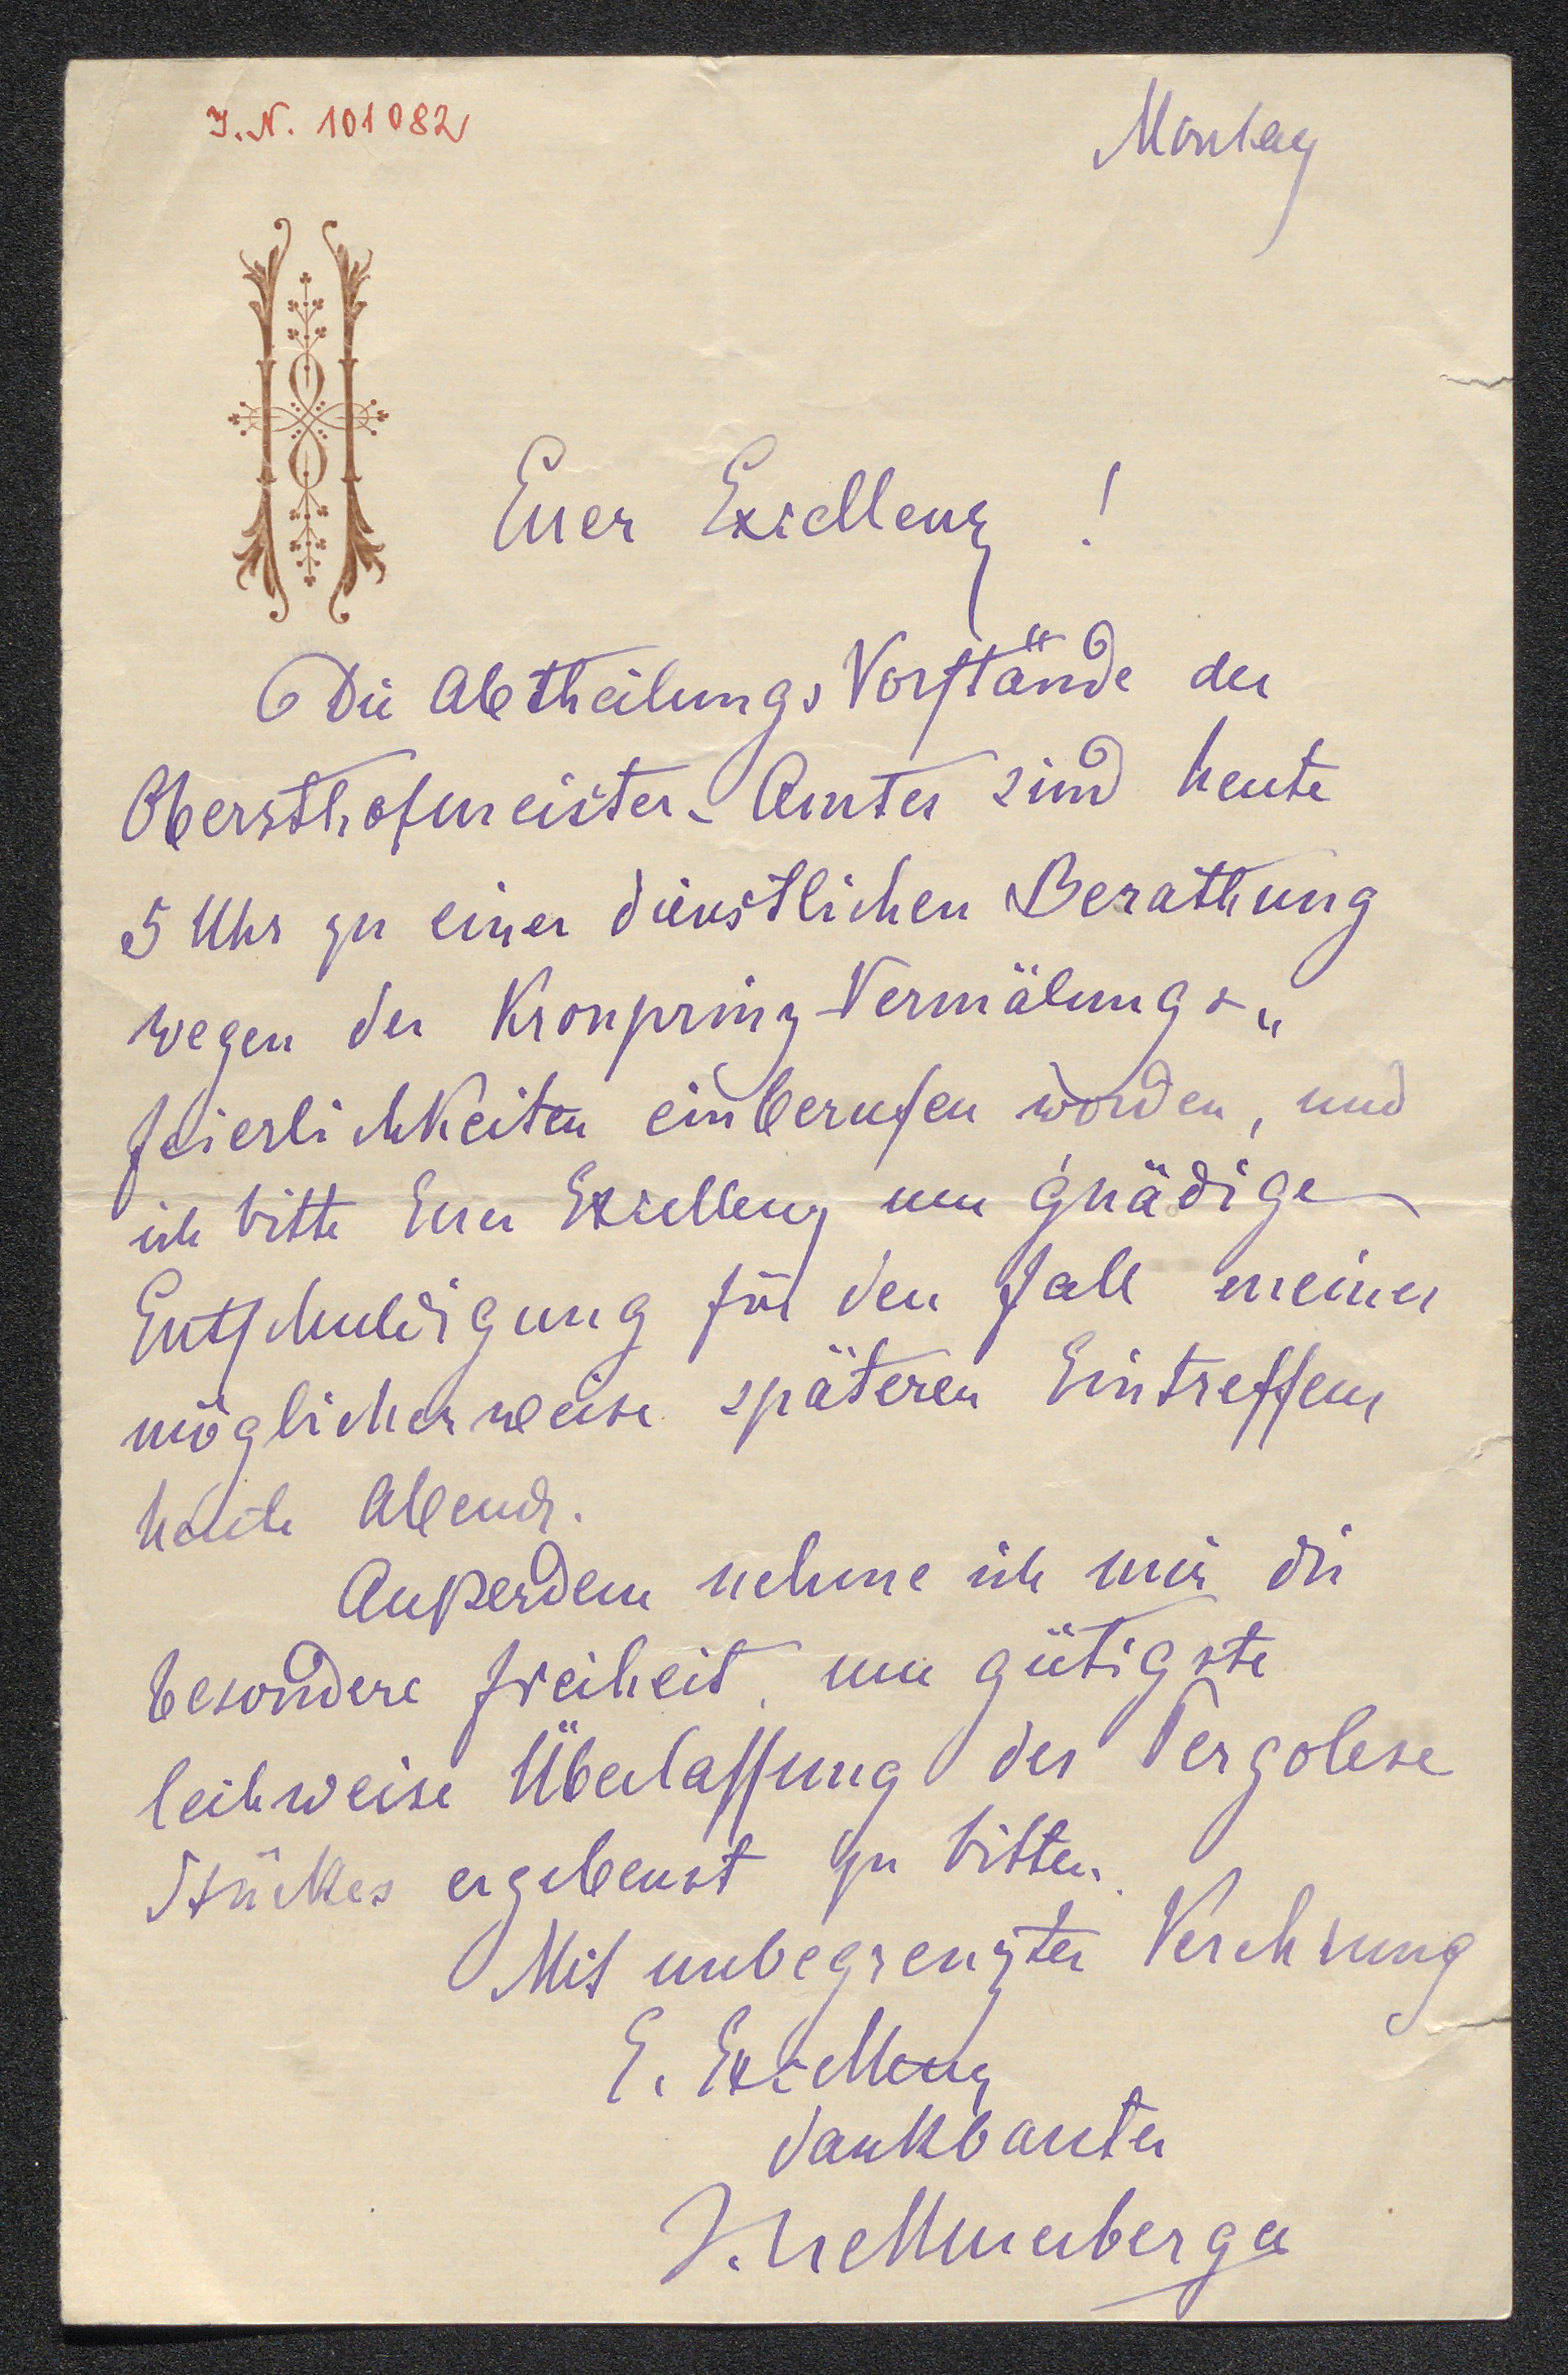 I.N. 101082
Montag
H
Euer Excellenz !
Die Abtheilungs Vorstände des
Obersthofmeister-Amtes sind heute
5 Uhr zu einer dienstlichen Berathung
wegen der Kronprinz-Vermälungs„
feierlichkeiten einberufen worden, und
ich bitte Euer Excellenz um gnädige
Entschuldigung für den Fall meines
möglicherweise späteren Eintreffens
heute Abend.
Außerdem nehme ich mir die
besondere Freiheit, um gütigste
leihweise Überlassung des Pergolese
Stückes ergebenst zu bitten.
Mit unbegrenzter Verehrung
E. Excellenz
dankbarster
J. Hellmesberger